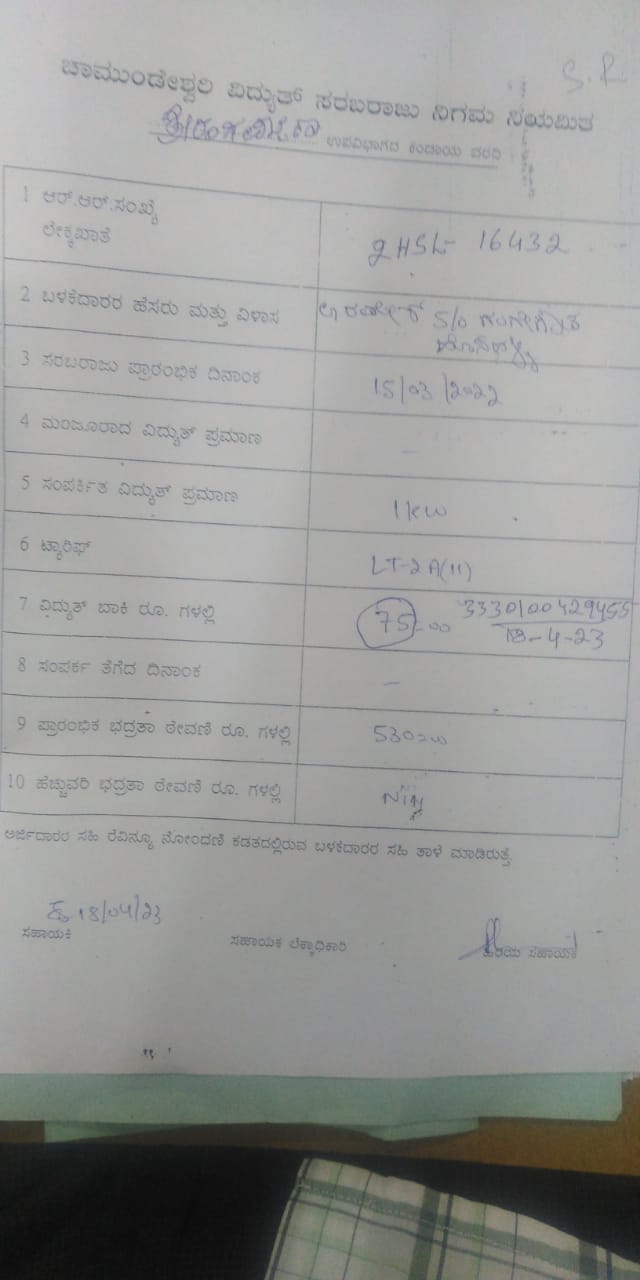 S.R
ಚಾಮುಂಡೇಶ್ವರಿ ವಿದ್ಯುತ್ ಸರಬರಾಜು ನಿಗಮ ನಿಯಮಿತ
ಶ್ರೀರಂಗಪಟ್ಟಣ ಉಪವಿಭಾಗದ ಕಂದಾಯ ವರದಿ
1 ಆರ್.ಆರ್.ಸಂಖ್ಯೆ
ಲೆಕ್ಕಖಾತೆ
2HSL- 16432
2 ಬಳಕೆದಾರರ ಹೆಸರು ಮತ್ತು ವಿಳಾಸ
S/o
3 ಸರಬರಾಜು ಪ್ರಾರಂಭಿಕ ದಿನಾಂಕ 15/03/2022
4 ಮಂಜೂರಾದ ವಿದ್ಯುತ್ ಪ್ರಮಾಣ -
5 ಸಂಪರ್ಕಿತ ವಿದ್ಯುತ್ ಪ್ರಮಾಣ 1kw
6 ಟ್ಯಾರಿಫ್ LT-2A(11)
7 ವಿದ್ಯುತ್ ಬಾಕಿ ರೂ. ಗಳಲ್ಲಿ 75-00 3330100429455
18-4-23
8 ಸಂಪರ್ಕ ತೆಗೆದ ದಿನಾಂಕ -
9 ಪ್ರಾರಂಭಿಕ ಭದ್ರತಾ ಠೇವಣಿ ರೂ. ಗಳಲ್ಲಿ 530=00
10 ಹೆಚ್ಚುವರಿ ಭದ್ರತಾ ಠೇವಣಿ ರೂ. ಗಳಲ್ಲಿ
ಅರ್ಜಿದಾರರ ಸಹಿ ರೆವಿನ್ಯೂ ನೋಂದಣಿ ಕಡತದಲ್ಲಿರುವ ಬಳಕೆದಾರರ ಸಹಿ ತಾಳೆ ಮಾಡಿರುತ್ತೆ.
18/04/23
ಸಹಾಯಕ ಸಹಾಯಕ ಲೆಕ್ಕಾಧಿಕಾರಿ ಹಿರಿಯ ಸಹಾಯಕ